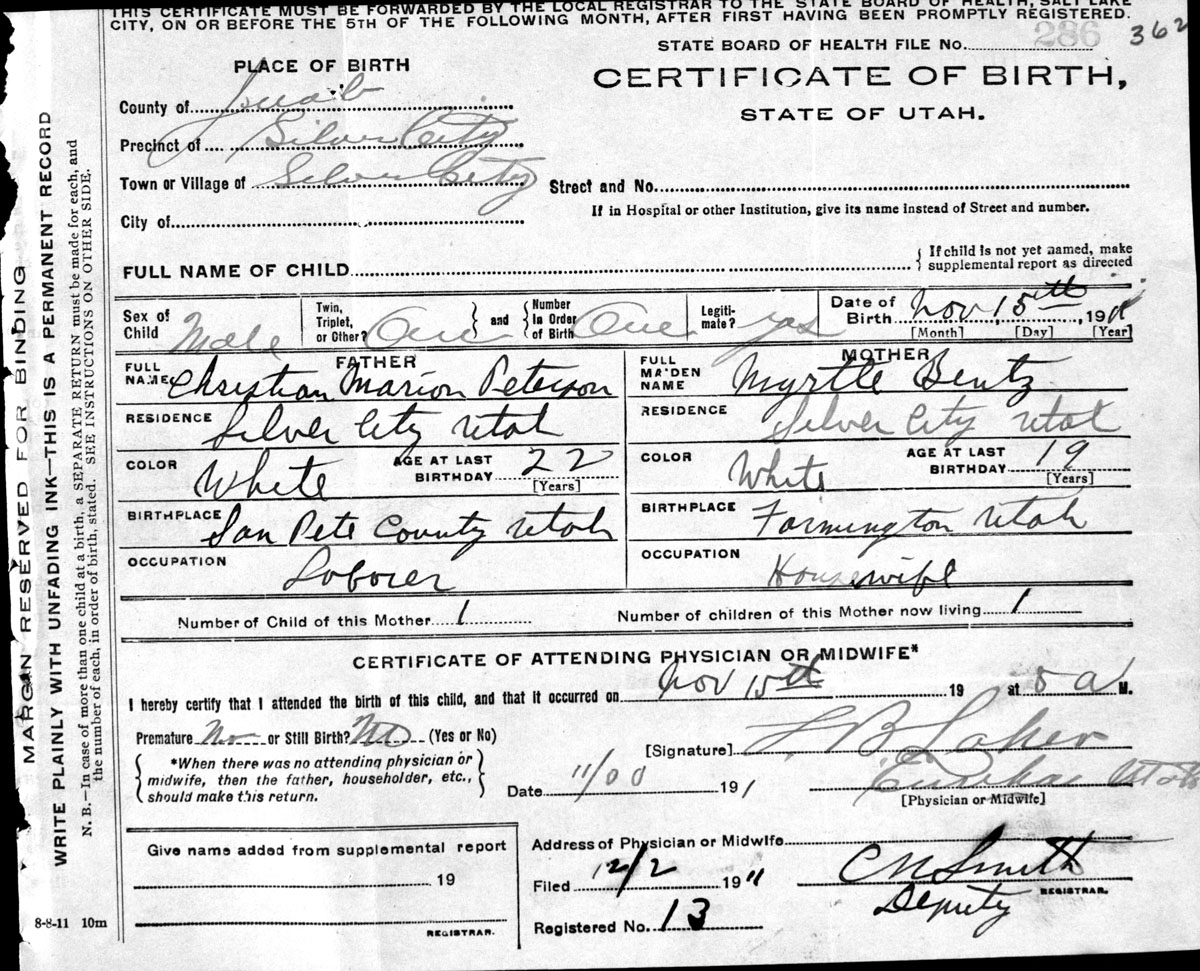 THIS CERTIFICATE MUST BE FORWARDED BY THE LOCAL REGISTRAR TO THE STATE BOARD OF HEALTH, SALT LAKE
CITY, ON OR BEFORE THE 5TH OF THE FOLLOWING MONTH, AFTER FIRST HAVING BEEN PROMPTLY REGISTERED.
STATE BOARD OF HEALTH FILE NO. 286 362
PLACE OF BIRTH
CERTIFICATE OF BIRTH,
STATE OF UTAH.
County of Juab
Precinct of Silver City
Town or Village of Silver City
Street and No.
City of
If in Hospital or other Institution, give its name instead of Street and number.
FULL NAME OF CHILD
{ If child is not yet named, make
supplemental report as directed
Sex of Child Male
Twin, Triplet, or Other? One } and { Number In Order of Birth One
Legitimate? yes
Date of Birth Nov 15th, 1911
[Month] [Day] [Year]
FATHER
FULL NAME Christian Marion Peterson
RESIDENCE Silver City Utah
COLOR White AGE AT LAST BIRTHDAY 22
[Years]
BIRTHPLACE San Pete County Utah
OCCUPATION Laborer
MOTHER
FULL MAIDEN NAME Myrtle Bentz
RESIDENCE Silver City Utah
COLOR White AGE AT LAST BIRTHDAY 19
[Years]
BIRTHPLACE Farmington Utah
OCCUPATION Housewife
Number of Child of this Mother 1 Number of children of this Mother now living 1
CERTIFICATE OF ATTENDING PHYSICIAN OR MIDWIFE*
I hereby certify that I attended the birth of this child, and that it occurred on Nov 15th 19 at a M.
Premature No or Still Birth? No (Yes or No)
*When there was no attending physician or
midwife, then the father, householder, etc.,
should make this return.
[Signature]
Date 191
Eureka Utah
[Physician or Midwife]
Give name added from supplemental report
19
REGISTRAR.
Address of Physician or Midwife
Filed 12/2 1911
C N Smith
REGISTRAR.
Deputy
Registered No. 13
8-8-11 10m
MARGIN RESERVED FOR BINDING
WRITE PLAINLY WITH UNFADING INK—THIS IS A PERMANENT RECORD
N. B.—In case of more than one child at a birth, a SEPARATE RETURN must be made for each, and
the number of each, in order of birth, stated. SEE INSTRUCTIONS ON OTHER SIDE.